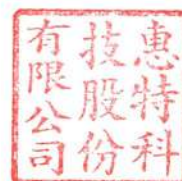 惠特科
技股份
有限公司